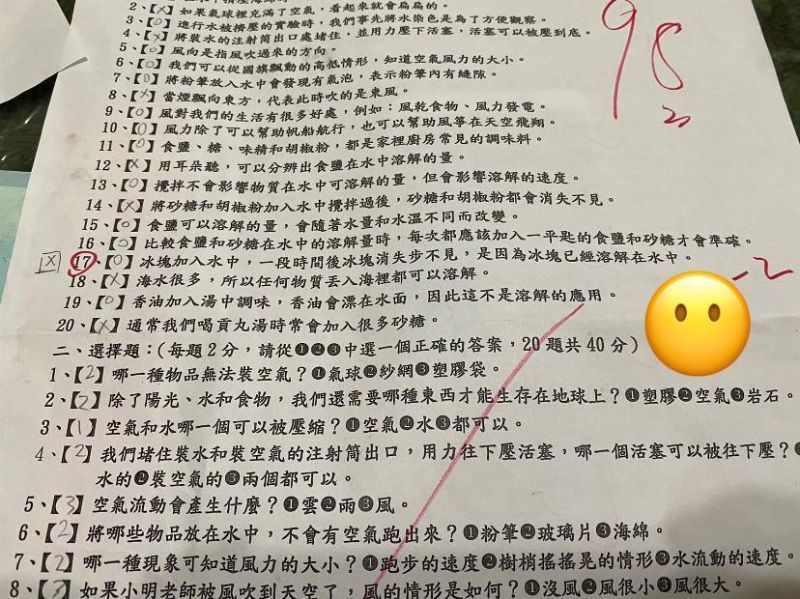 98
2、【X】如果氣球裡充滿了空氣，看起來就會扁扁的。
3、【O】進行水被擠壓的實驗時，我們事先將水染色是為了方便觀察。
4、【X】將裝水的注射筒出口處堵住，並用力壓下活塞，活塞可以被壓到底。
5、【O】風向是指風吹過來的方向。
6、【O】我們可以從國旗飄動的高低情形，知道空氣風力的大小。
7、【O】將粉筆放入水中會發現有氣泡，表示粉筆內有縫隙。
8、【X】當煙飄向東方，代表此時吹的是東風。
9、【O】風對我們的生活有很多好處，例如：風乾食物、風力發電。
10、【O】風力除了可以幫助帆船航行，也可以幫助風箏在天空飛翔。
11、【O】食鹽、糖、味精和胡椒粉，都是家裡廚房常見的調味料。
12、【X】用耳朵聽，可以分辨出食鹽在水中溶解的量。
13、【O】攪拌不會影響物質在水中可溶解的量，但會影響溶解的速度。
14、【X】將砂糖和胡椒粉加入水中攪拌過後，砂糖和胡椒粉都會消失不見。
15、【O】食鹽可以溶解的量，會隨著水量和水溫不同而改變。
16、【O】比較食鹽和砂糖在水中的溶解量時，每次都應該加入一平匙的食鹽和砂糖才會準確。
X 17、【O】冰塊加入水中，一段時間後冰塊消失步不見，是因為冰塊已經溶解在水中。
18、【X】海水很多，所以任何物質丟入海裡都可以溶解。
-2
19、【O】香油加入湯中調味，香油會漂在水面，因此這不是溶解的應用。
20、【X】通常我們喝貢丸湯時常會加入很多砂糖。
二、選擇題：（每題2分，請從❶❷❸中選一個正確的答案，20題共40分）
1、【2】哪一種物品無法裝空氣？❶氣球❷紗網❸塑膠袋。
2、【2】除了陽光、水和食物，我們還需要哪種東西才能生存在地球上？❶塑膠❷空氣❸岩石。
3、【1】空氣和水哪一個可以被壓縮？❶空氣❷水❸都可以。
4、【2】我們堵住裝水和裝空氣的注射筒出口，用力往下壓活塞，哪一個活塞可以被往下壓？
水的❷裝空氣的❸兩個都可以。
5、【3】空氣流動會產生什麼？❶雲❷雨❸風。
6、【2】將哪些物品放在水中，不會有空氣跑出來？❶粉筆❷玻璃片❸海綿。
7、【2】哪一種現象可知道風力的大小？❶跑步的速度❷樹梢搖搖晃的情形❸水流動的速度。
8、【3】如果小明老師被風吹到天空了，風的情形是如何？❶沒風❷風很小❸風很大。